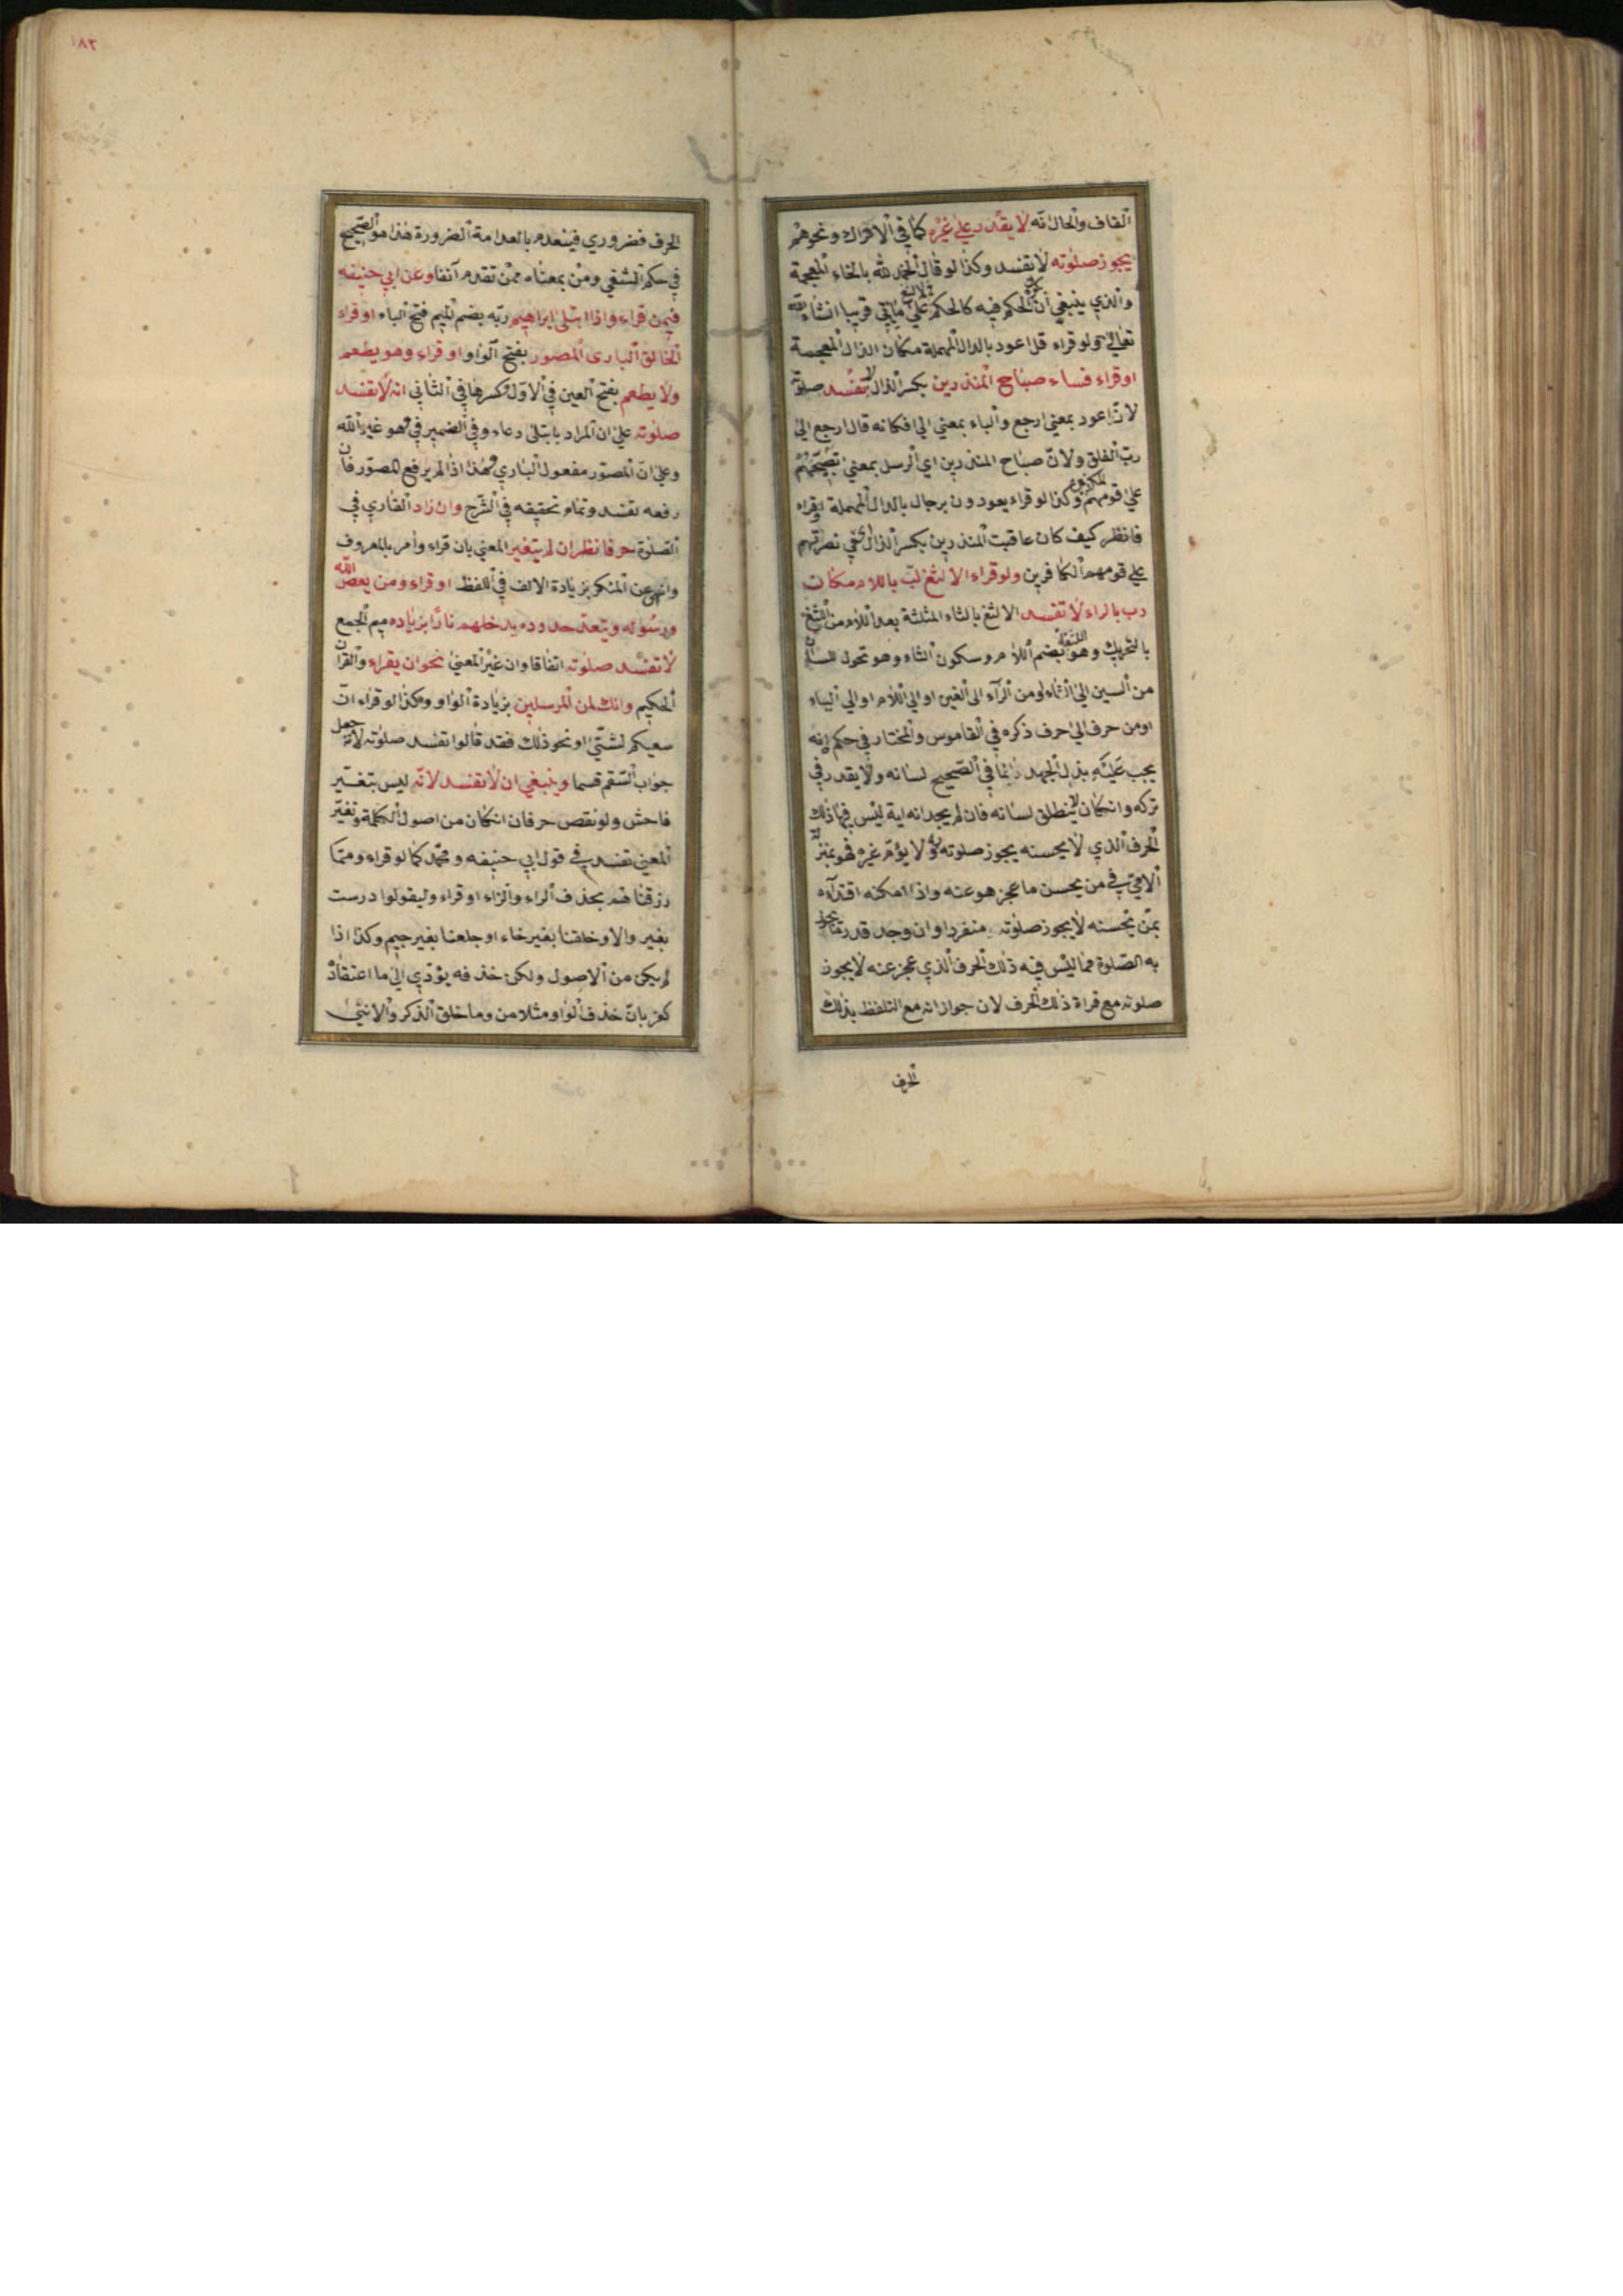 القاف والحال انه لا يقدر على غيره كما في الاتراك ونحوهم
يجوز صلوته لا تفسد وكذا لو قال الخمد لله بالخاء المعجمة
والذي ينبغي ان يكون الحكم فيه كالحكم في الالثغ على ما ياتي قريبا انشاء الله
تعالى ولو قراء قل اعود بالدال المهملة مكان الذال المعجمة
او قراء فساء صباح المنذرين بكسر الذال لا تفسد صلوته
لان اعود بمعنى ارجع والباء بمعنى الى فكانه قال ارجع الى
رب الفلق ولان صباح المنذرين اي الرسل بمعنى تصبيحهم
على قومهم وكذا لو قراء يعودون برجال بالدال المهملة او قراء
فانظر كيف كان عاقبت المنذرين بكسر الذال اي في نصرتهم
على قومهم الكافرين ولو قراء الالثغ لب باللام مكان
رب بالراء لا تفسد الالثغ بالثاء المثلثة بعد اللام من اللثغ
بالتحريك وهو اللثغة بضم اللام وسكون الثاء وهو تحول اللسان
من السين الى الثاء او من الراء الى الغين او الى اللام او الى الياء
او من حرف الى حرف ذكره في القاموس والمختار في حكمه انه
يجب عليه بذل الجهد دائما في الصحيح لسانه ولا يقدر في
تركه وانكان لا ينطلق لسانه فان لم يجد انه اية ليس فيها ذلك
الحرف الذي لا يحسنه يجوز صلوته به ولا يؤم غيره فهو بمنزلة
الامي في من يحسن ما عجز هو عنه واذا امكنه اقتداؤه
بمن يحسنه لا يجوز صلوته منفردا وان وجد قدر ما يجوز
به الصلوة مما ليس فيه ذلك الحرف الذي عجز عنه لا يجوز
صلوته مع قراة ذلك الحرف لان جوازانه مع التلفظ بذلك
الحرف
١٨٢
الحرف فضروري فينعدم بانعدامة الضرورة هذا هو الصحيح
في حكم الشفي ومن بمعناه ممن تقدم آنفا وعن ابي حنيفه
فيمن قراء واذا ابتلى ابراهيم ربه بضم الميم فتح الباء او قراء
الخالق البارى المصور بفتح الواو او قراء وهو يطعم
ولا يطعم بفتح العين في الاول وكسرها في الثاني انه لا تفسد
صلوته على ان المراد بابتلى دعاء وفي الضمير في وهو غير الله
وعلى ان المصور مفعول الباري وهذا اذا لم يرفع المصور فان
رفعه تفسد وتمام تحقيقه في الشرح وان زاد القاري في
الصلوة حرفا نظر ان لم يتغير المعنى بان قراء وامر بالمعروف
وانهى عن المنكر بزيادة الالف في اللفظ او قراء ومن يعص الله
ورسوله ويتعد حدوده يدخلهم نارا بزياده ميم الجمع
لا تفسد صلوته اتفاقا وان غير المعنى نحو ان يقراء والقران
الحكيم وانك لمن المرسلين بزيادة الواو وكذا لو قراء ان
سعيكم لشتى او نحو ذلك فقد قالوا تفسد صلوته لانه جعل
جواب القسم قسما وينبغي ان لا تفسد لانه ليس بتغير
فاحش ولو نقص حرفان انكان من اصول الكلمة وتغير
المعنى تفسد في قول ابي حنيفه ومحمد كما لو قراء ومما
رزقنا هم بحذف الراء والزاء او قراء وليقولوا درست
بغير والا وخلقنا بغير خاء او جلعنا بغير جيم وكذا اذا
لم يكن من الاصول ولكن خذفه يؤدي الى ما اعتقاد
كفر بان خذف الواو مثلا من وما خلق الذكر والانثى